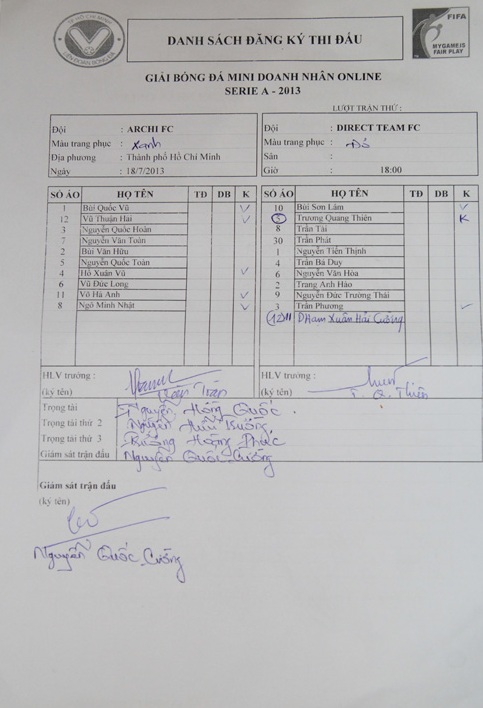 FIFA
MY GAME IS
FAIR PLAY
DANH SÁCH ĐĂNG KÝ THI ĐẤU
GIẢI BÓNG ĐÁ MINI DOANH NHÂN ONLINE
SERIE A - 2013
LƯỢT TRẬN THỨ :
Đội : ARCHI FC
Màu trang phục : Xanh
Địa phương : Thành phố Hồ Chí Minh
Ngày : 18/7/2013
Đội : DIRECT TEAM FC
Màu trang phục : Đỏ
Sân :
Giờ 18:00
SỐ ÁO HỌ TÊN TĐ DB K
1 Bùi Quốc Vũ V
12 Vũ Thuận Hải V
3 Nguyễn Quốc Hoàn
7 Nguyễn Văn Toàn
2 Bùi Văn Hữu V
5 Nguyễn Quốc Toàn
4 Hồ Xuân Vũ V
6 Vũ Đức Long
11 Võ Hà Anh V
8 Ngô Minh Nhật V
SỐ ÁO HỌ TÊN TĐ DB K
10 Bùi Sơn Lâm V
5 Trương Quang Thiên K
8 Trần Tài
30 Trần Phát
1 Nguyễn Tiến Thịnh
4 Trần Bá Duy
6 Nguyễn Văn Hòa
2 Trang Anh Hào
9 Nguyễn Đức Trường Thái
3 Trần Phương V
(12) 11 Phạm Xuân Hải Cường
HLV trưởng :
(ký tên) Trần
HLV trưởng :
(ký tên) T. Q. Thiên
Trọng tài Nguyễn Hồng Quốc
Trọng tài thứ 2 Nguyễn Hữu
Trọng tài thứ 3 Hồng Phúc
Giám sát trận đấu Nguyễn Quốc Cường
Giám sát trận đấu
(ký tên)
Nguyễn Quốc Cường